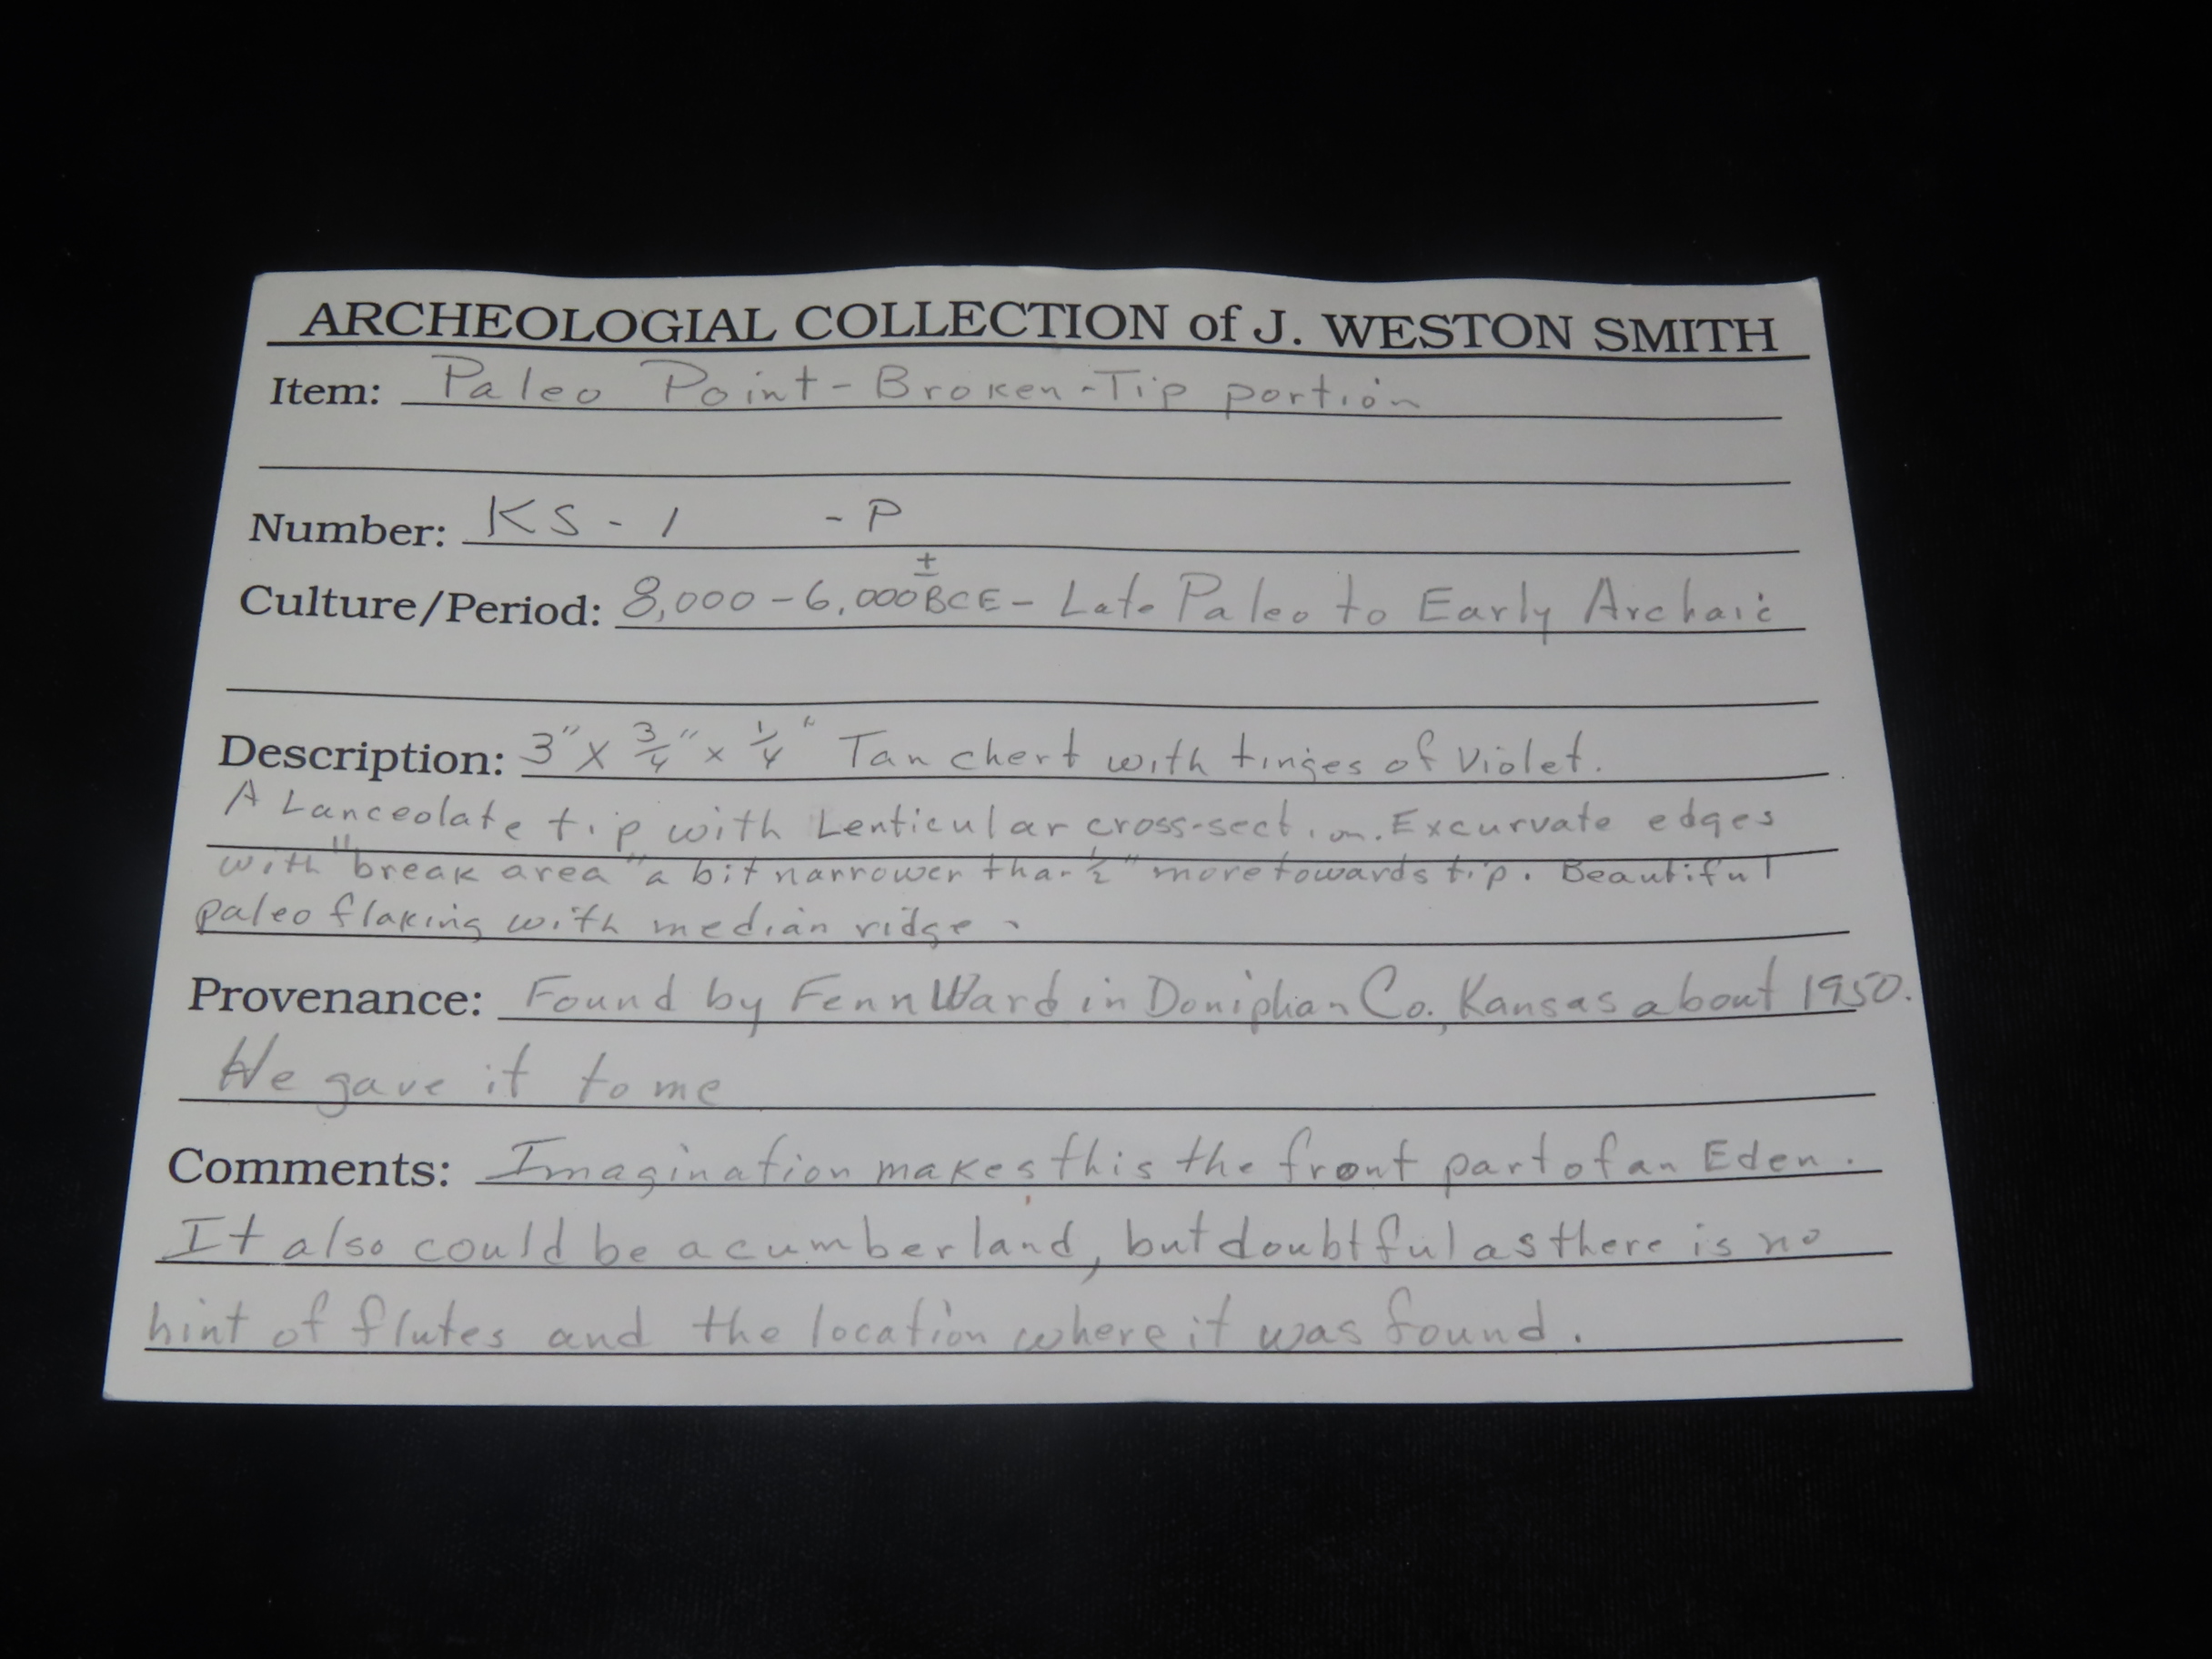 ARCHEOLOGIAL COLLECTION of J. WESTON SMITH
Item: Paleo Point - Broken - Tip portion
Number: KS - 1 - P
±
Culture/Period: 8,000 - 6,000 BCE - Late Paleo to Early Archaic
Description: 3" x 3/4" x 1/4" Tan chert with tinges of Violet.
A Lanceolate tip with Lenticular cross-section. Excurvate edges
with "break area" a bit narrower than 1/2" more towards tip. Beautiful
paleo flaking with median ridge.
Provenance: Found by Fenn Ward in Doniphan Co., Kansas about 1950.
He gave it to me
Comments: Imagination makes this the front part of an Eden.
It also could be a cumberland, but doubtful as there is no
hint of flutes and the location where it was found.